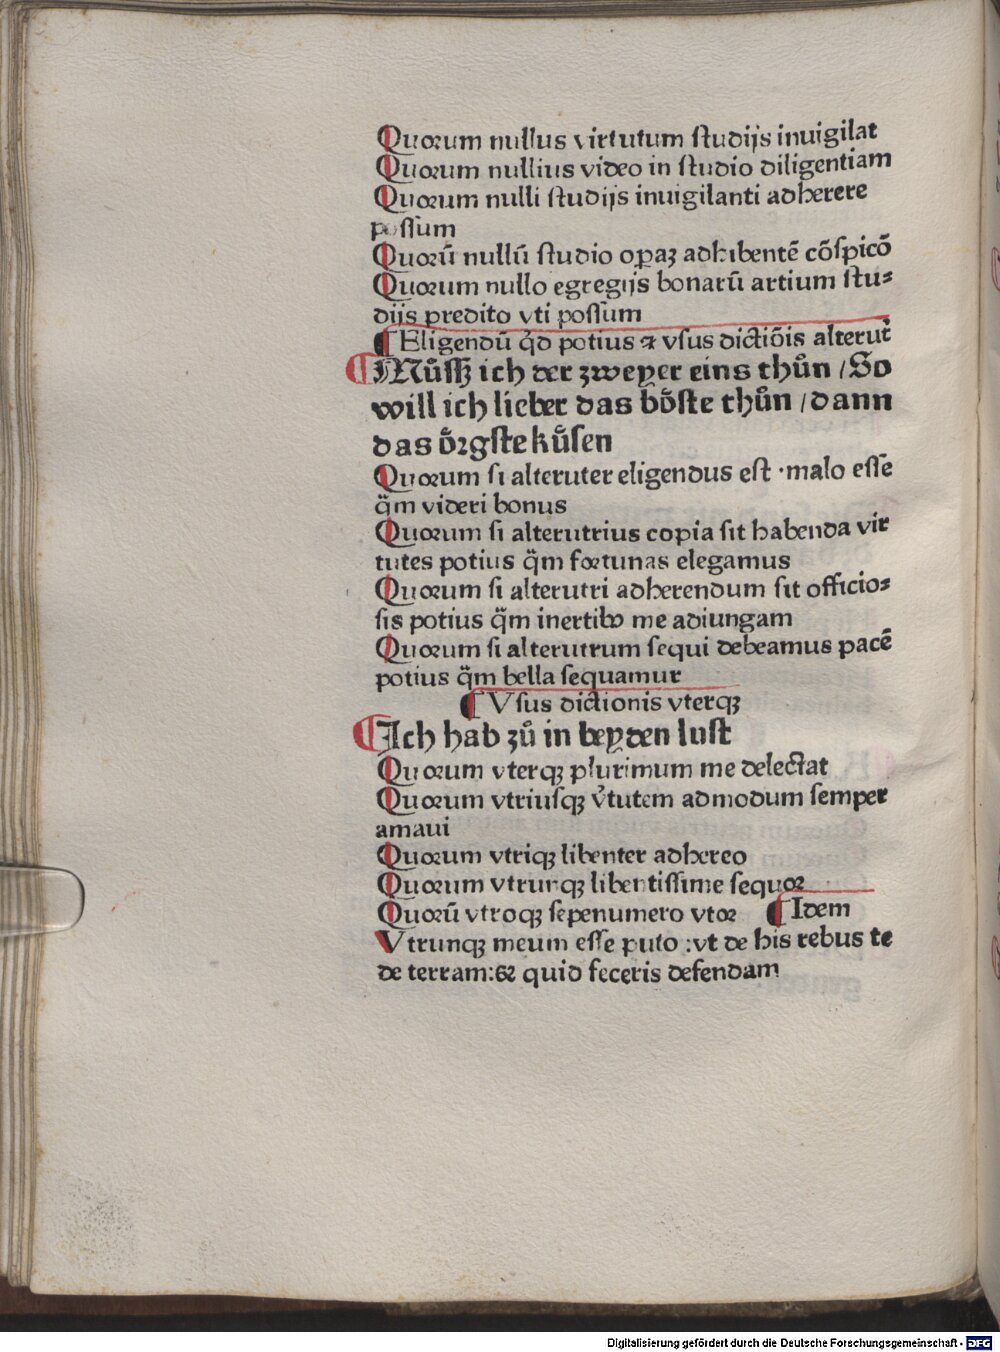 Quorum nullus virtutum ſtudijs inuigilat
Quorum nullius video in ſtudio diligentiam
Quorum nulli ſtudijs inuigilanti adherere
poſſum
Quorū nullū ſtudio oꝑaꝫ adhibentē cōſpicō
Quorum nullo egregijs bonarū artium ſtu⸗
dijs predito vti poſſum
¶ Eligendū qͥd potius ⁊ vſus dictiōis alterut̉
¶ Můſſꝫ ich der zweyer eins thůn / So
will ich lieber das bo̊ſte thůn / dann
das o̊rgſte ku̇ſen
Quorum ſi alteruter eligendus eſt · malo eſſe
q̈m videri bonus
Quorum ſi alterutrius copia ſit habenda vir
tutes potius q̈m fortunas elegamus
Quorum ſi alterutri adherendum ſit officio⸗
ſis potius q̈m inertibꝰ me adiungam
Quorum ſi alterutrum ſequi debeamus pacē
potius q̈m bella ſequamur
¶ Vſus dictionis vterqꝫ
¶ Ich hab zů in beyden luſt
Quorum vterqꝫ plurimum me delectat
Quorum vtriuſqꝫ v̉tutem admodum ſemper
amaui
Quorum vtriqꝫ libenter adhereo
Quorum vtrunqꝫ libentiſſime ſequor
Quorū vtroqꝫ ſepenumero vtor ¶ Idem
Vtrunqꝫ meum eſſe puto : vt de his rebus te
de terram: ⁊ quid feceris defendam
Digitalisierung gefördert durch die Deutsche Forschungsgemeinschaft - DFG